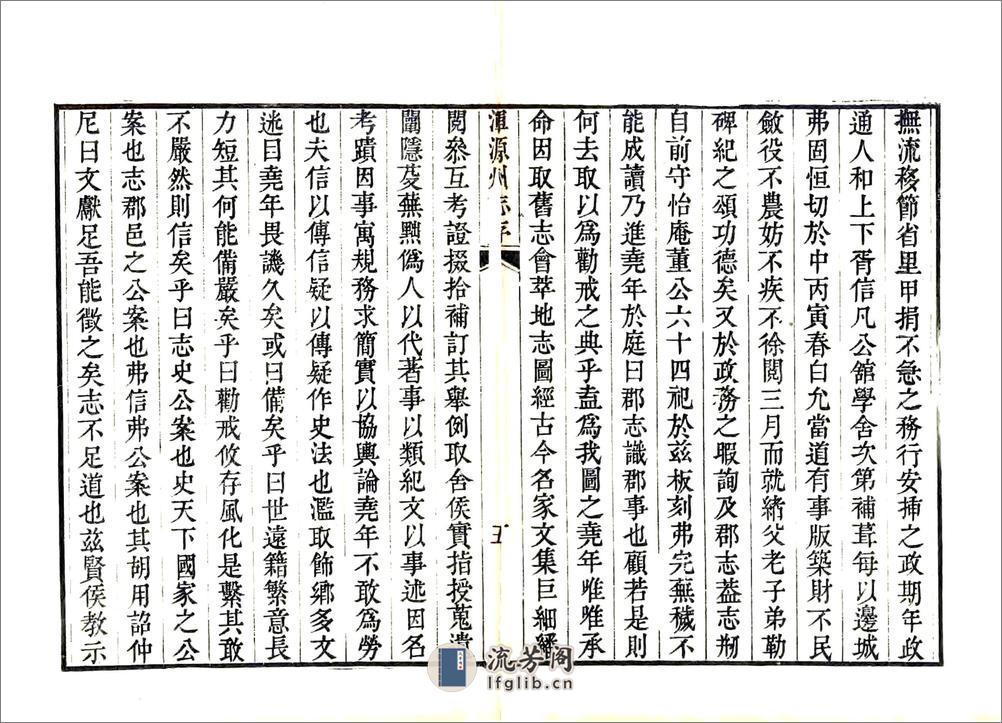 撫流移節省里甲捐不急之務行安揷之政期年政
通人和上下胥信凡公舘學舍次第補葺每以邊城
弗固恒切於中丙寅春白允當道有事版築財不民
斂役不農妨不疾不徐閱三月而就緒父老子弟勒
碑紀之頌功德矣又於政務之暇詢及郡志葢志刱
自前守怡庵董公六十四祀於兹板刻弗完蕪穢不
能成讀乃進堯年於庭曰郡志識郡事也顧若是則
何去取以爲勸戒之典乎盍爲我圖之堯年唯唯承
命因取舊志會萃地志圖經古今各家文集巨細經
渾源州志序
五
閱叅互考證掇拾補訂其舉例取舍侯實指授蒐遺
闡隱芟蕪黜僞人以代著事以類紀文以事述因各
考蹟因事寓規務求簡實以協輿論堯年不敢爲勞
也夫信以傳信疑以傳疑作史法也濫取飾鄉多文
迷目堯年畏譏久矣或曰備矣乎曰世遠籍繁意長
力短其何能備嚴矣乎曰勸戒攸存風化是繫其敢
不嚴然則信矣乎曰志史公案也史天下國家之公
案也志郡邑之公案也弗信弗公案也其胡用詔仲
尼曰文獻足吾能徵之矣志不足道也兹賢侯教示
流芳阁
lfglib.cn